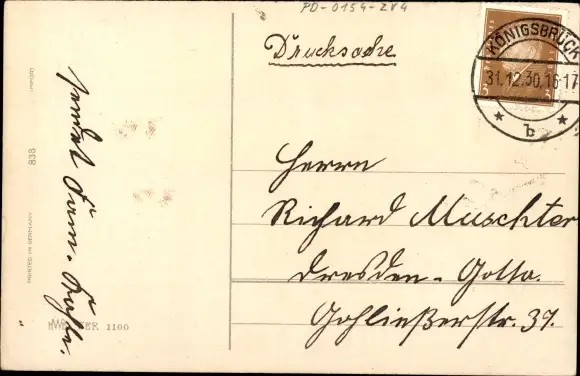 PD-0154-2V4
Drucksache
KÖNIGSBRÜCK
31.12.30.16-17
* b *
3
Herrn
Richard Muschter
Dresden-Gotta.
Gohließerstr. 37.
sendet Fam.
838
PRINTED IN GERMANY
1100